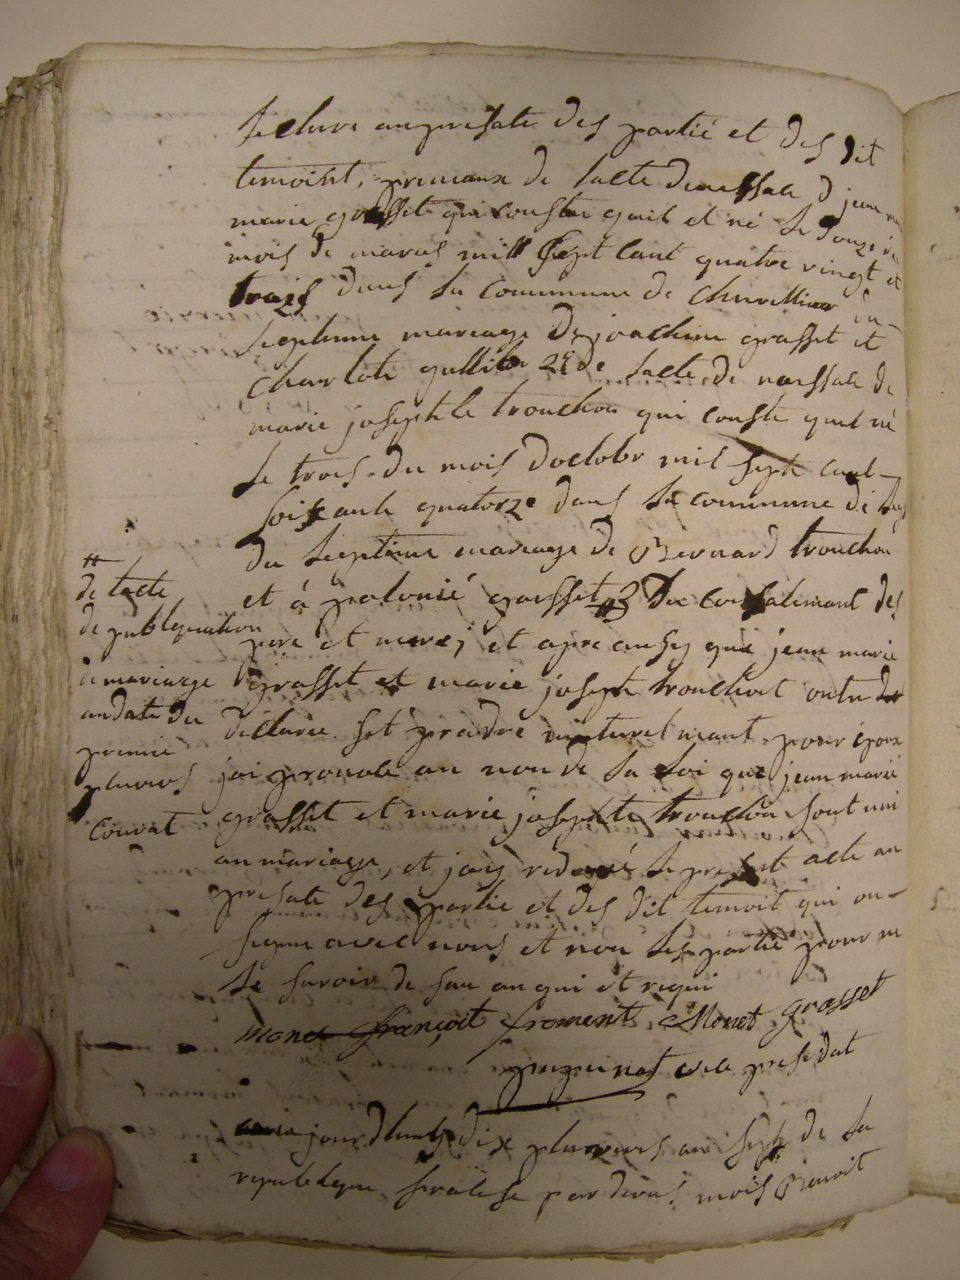 lecture an presate des partié et des dit
temoint, premeaux de lacte denessace d jean
marie grasset qui conste quil et né le douze du
mois de maras mill sept cant quatre vingt et
trois dans la commune de du
legitime mariage de joachim grasset et
charlote 2e de lacte de naissace de
marie josephte trouchon qui conste quil né
le trois du mois doctobr mil sept cant
soixante quatorze dans la commune de
du legitime mariage de Bernard trouchon
et à polonié grasset 3 du consalimant des
pere et mere; et apre ausy que jean marie
grasset et marie josephte trouchot ontu
declaree set prandre muturelmant pour epoux
jai pronocé au non de la loi que jean marie
grasset et marie josephte trouchon sont uni
an mariage, et jais redigé le presant acte an
presate des partie et des dit temoit qui on
signe avec nous et non les partié pour ne
le savoir de san anqui et requi
monet françoit froment Monet grasset
preside dat
jourdhuis dix pluvios an sept de la
republique par devas mois Benoit
de lacte
de publiquation
de mariage
andate du
premie
pluvios
couvat